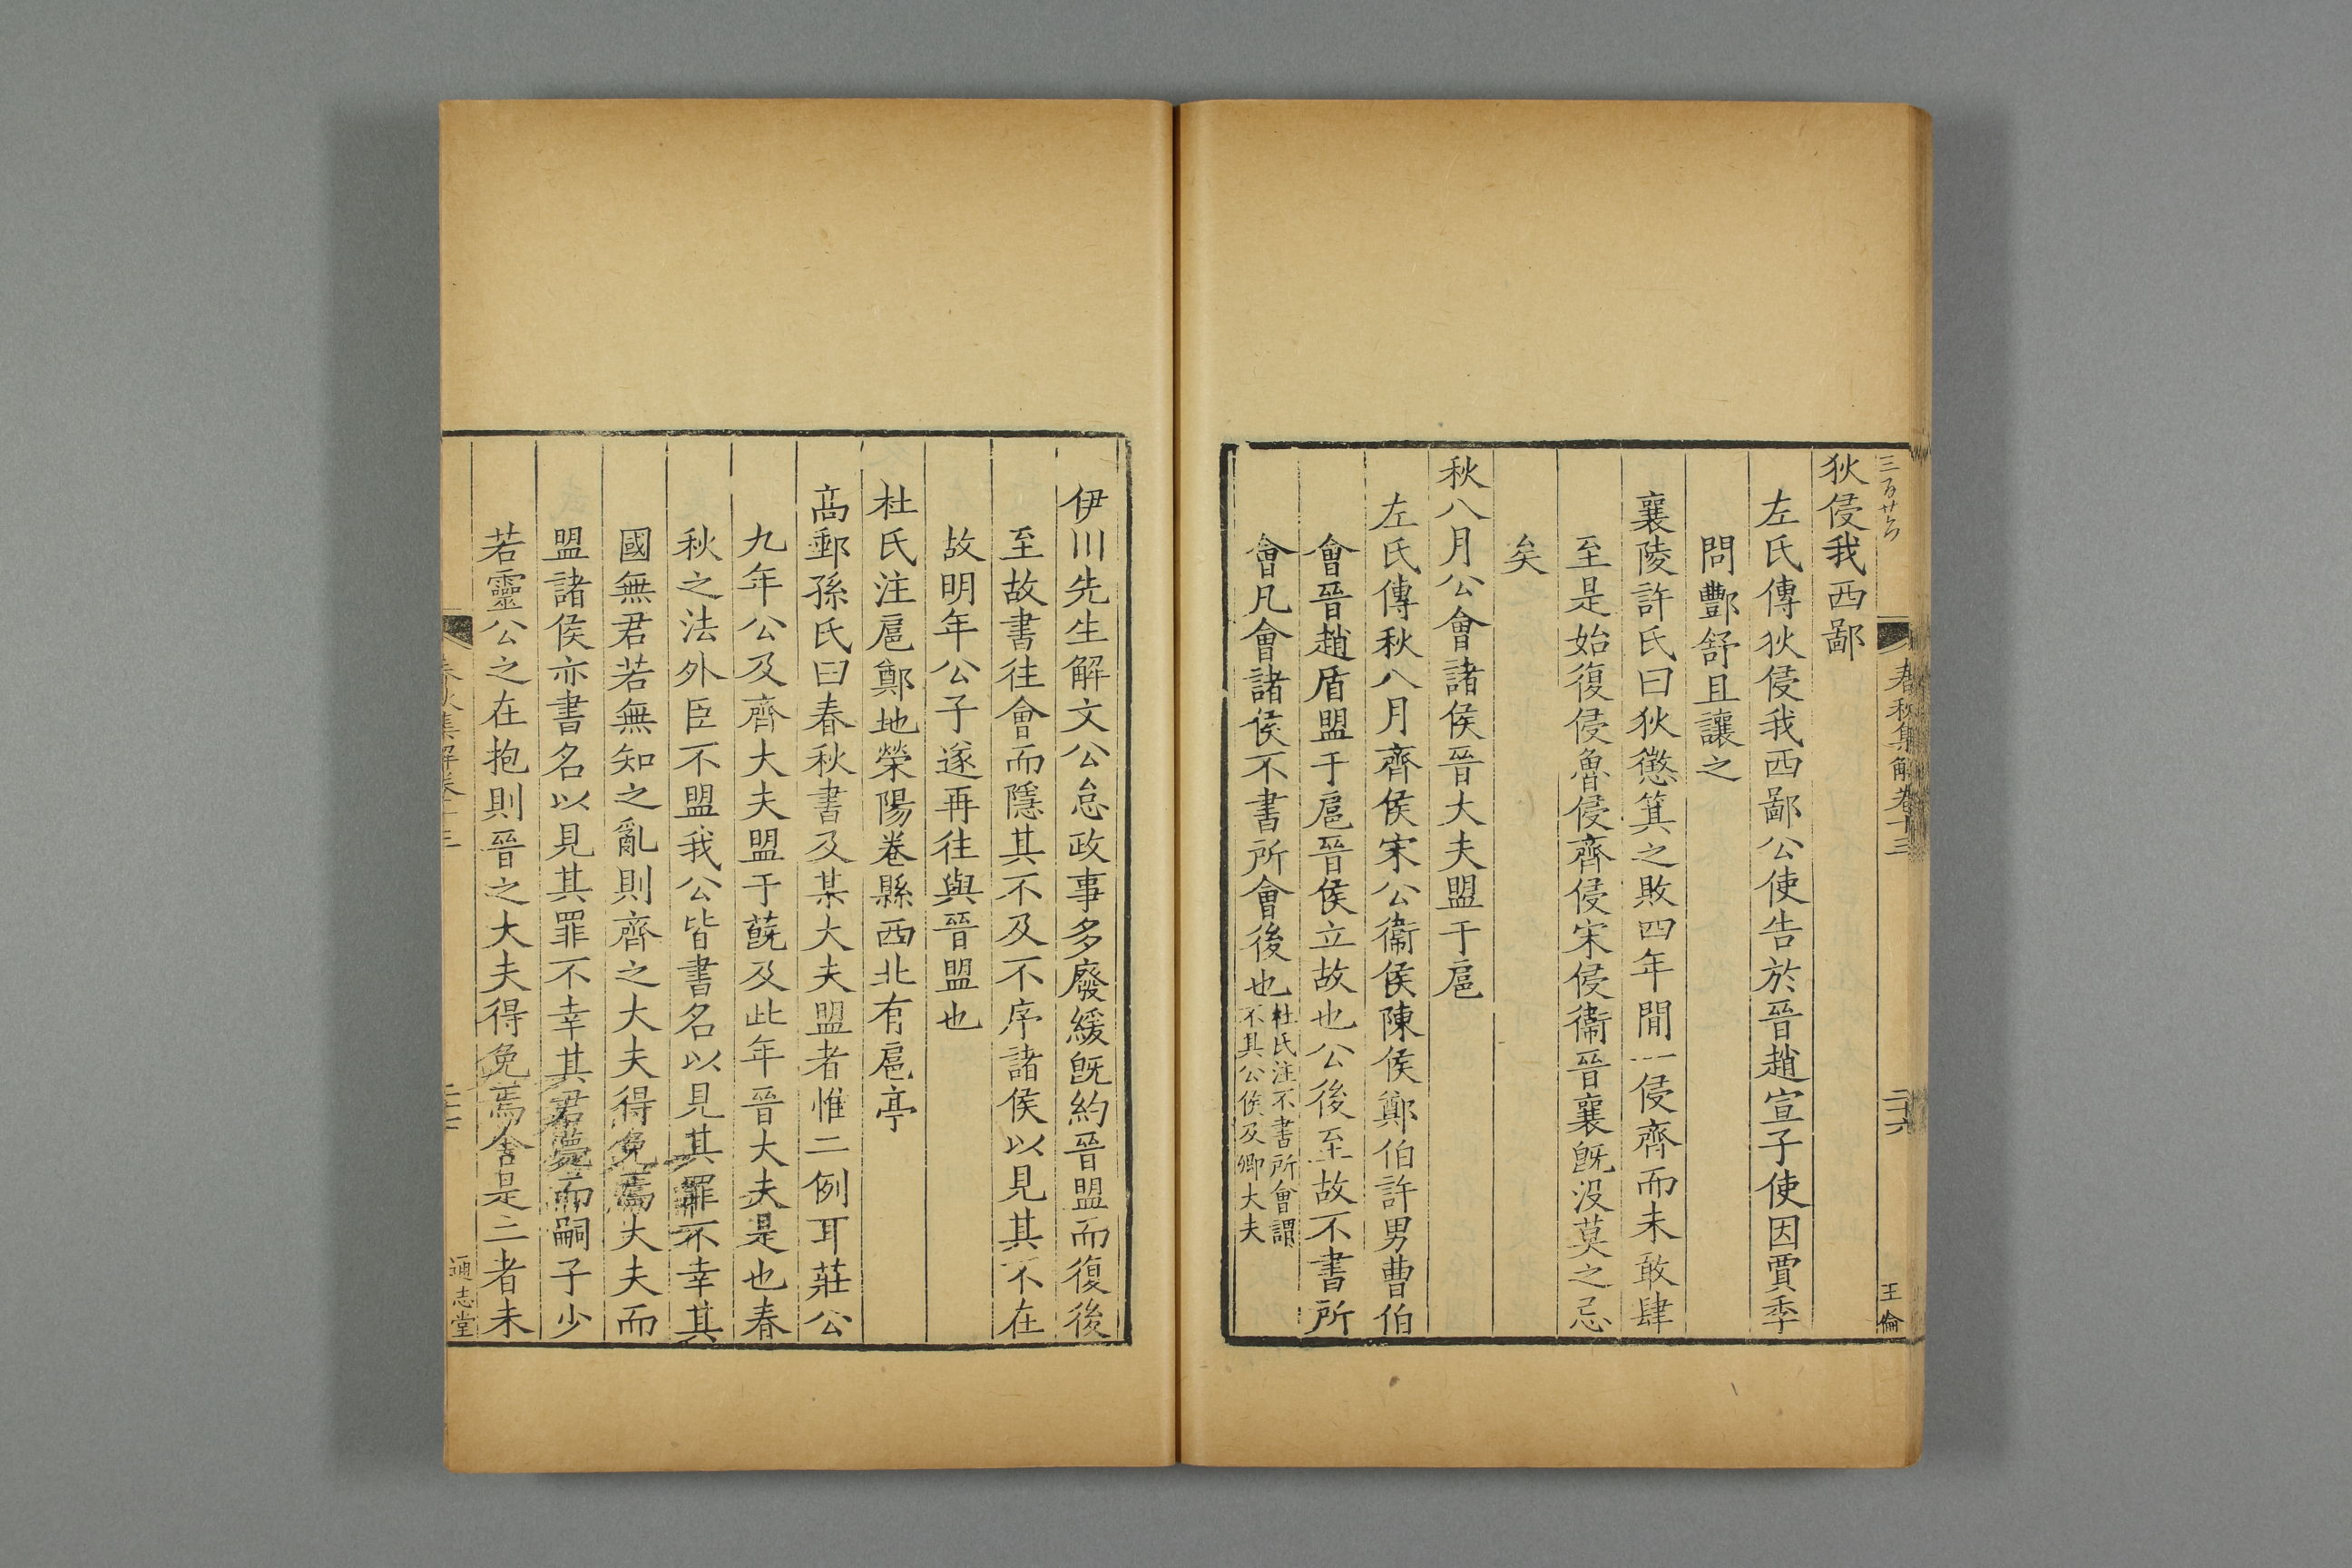 春秋集解卷十三
二十六
王倫
狄侵我西鄙
左氏傳狄侵我西鄙公使告於晉趙宣子使因賈季
問酆舒且讓之
襄陵許氏曰狄懲箕之敗四年閒一侵齊而未敢肆
至是始復侵魯侵齊侵宋侵衞晉襄旣没莫之忌
矣
秋八月公會諸侯晉大夫盟于扈
左氏傳秋八月齊侯宋公衞侯陳侯鄭伯許男曹伯
會晉趙盾盟于扈晉侯立故也公後至故不書所
會凡會諸侯不書所會後也
杜氏注不書所會謂
不具公侯及卿大夫
伊川先生解文公怠政事多廢緩旣約晉盟而復後
至故書往會而隱其不及不序諸侯以見其不在
故明年公子遂再往與晉盟也
杜氏注扈鄭地滎陽卷縣西北有扈亭
高郵孫氏曰春秋書及某大夫盟者惟二例耳莊公
九年公及齊大夫盟于蔇及此年晉大夫是也春
秋之法外臣不盟我公皆書名以見其罪不幸其
國無君若無知之亂則齊之大夫得免焉大夫而
盟諸侯亦書名以見其罪不幸其君薨而嗣子少
若靈公之在抱則晉之大夫得免焉舍是二者未
春秋集解卷十三
通志堂